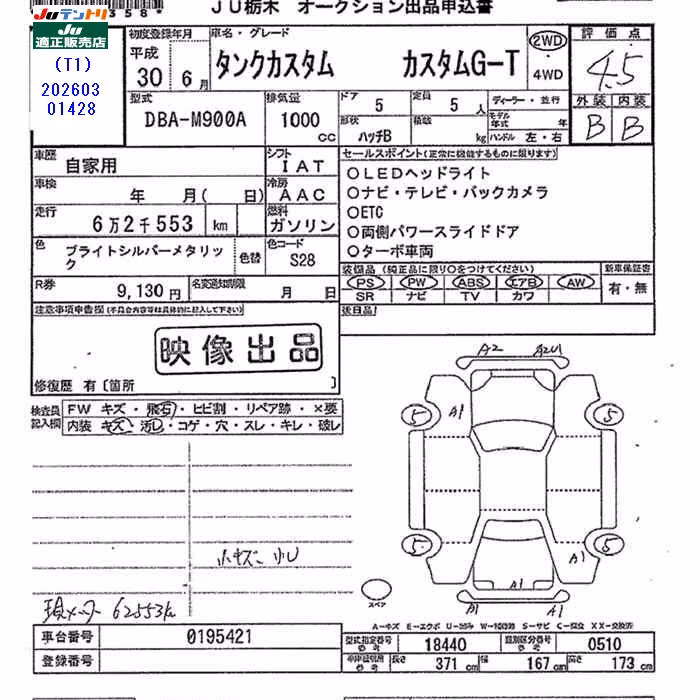 358*
JU栃木 オークション出品申込書
JUテントリ
JU適正販売店
(T1)
202603
01428
初度登録年月
平成
30 6月
車名・グレード
タンクカスタム カスタムG-T
2WD
・
4WD
評価点
4.5
外装 内装
B B
型式
DBA-M900A
排気量
1000
cc
ドア
5
定員
5 人
形状
ハッチB
積載
kg
ディーラー・並行
モデル年式 年
ハンドル 左・右
車歴
自家用
シフト
IAT
車検
年 月( 日)
冷房
AAC
走行
6万2千553 km
燃料
ガソリン
色
ブライトシルバーメタリック
色替
色コード
S28
R券
9,130円
名変通知期限
月 日
セールスポイント(正常に機能するものに限ります)
○LEDヘッドライト
○ナビ・テレビ・バックカメラ
○ETC
○両側パワースライドドア
○ターボ車両
装備品(純正品に限り○をつけてください)
PS PW ABS エアB AW
SR ナビ TV カワ
新車保証書
有・無
後日品
注意事項申告欄(不具合内容等は具体的に記入して下さい)
映像出品
修復歴 有〔箇所 〕
検査員記入欄
FW キズ・飛石・ヒビ割・リペア跡・×要
内装 キズ・汚レ・コゲ・穴・スレ・キレ・破レ
小キズ、小U
現メーター 62553km
A2 A2U
5 A1 5
5 5
A1
A1
A1 A1
スペア
A-キズ E-エクボ U-凹み W-補修跡 S-サビ C-腐食 XX-交換済
車台番号
0195421
登録番号
型式指定番号
参考
18440
類別区分番号
参考
0510
長さ
371 cm
幅
167 cm
高さ
173 cm